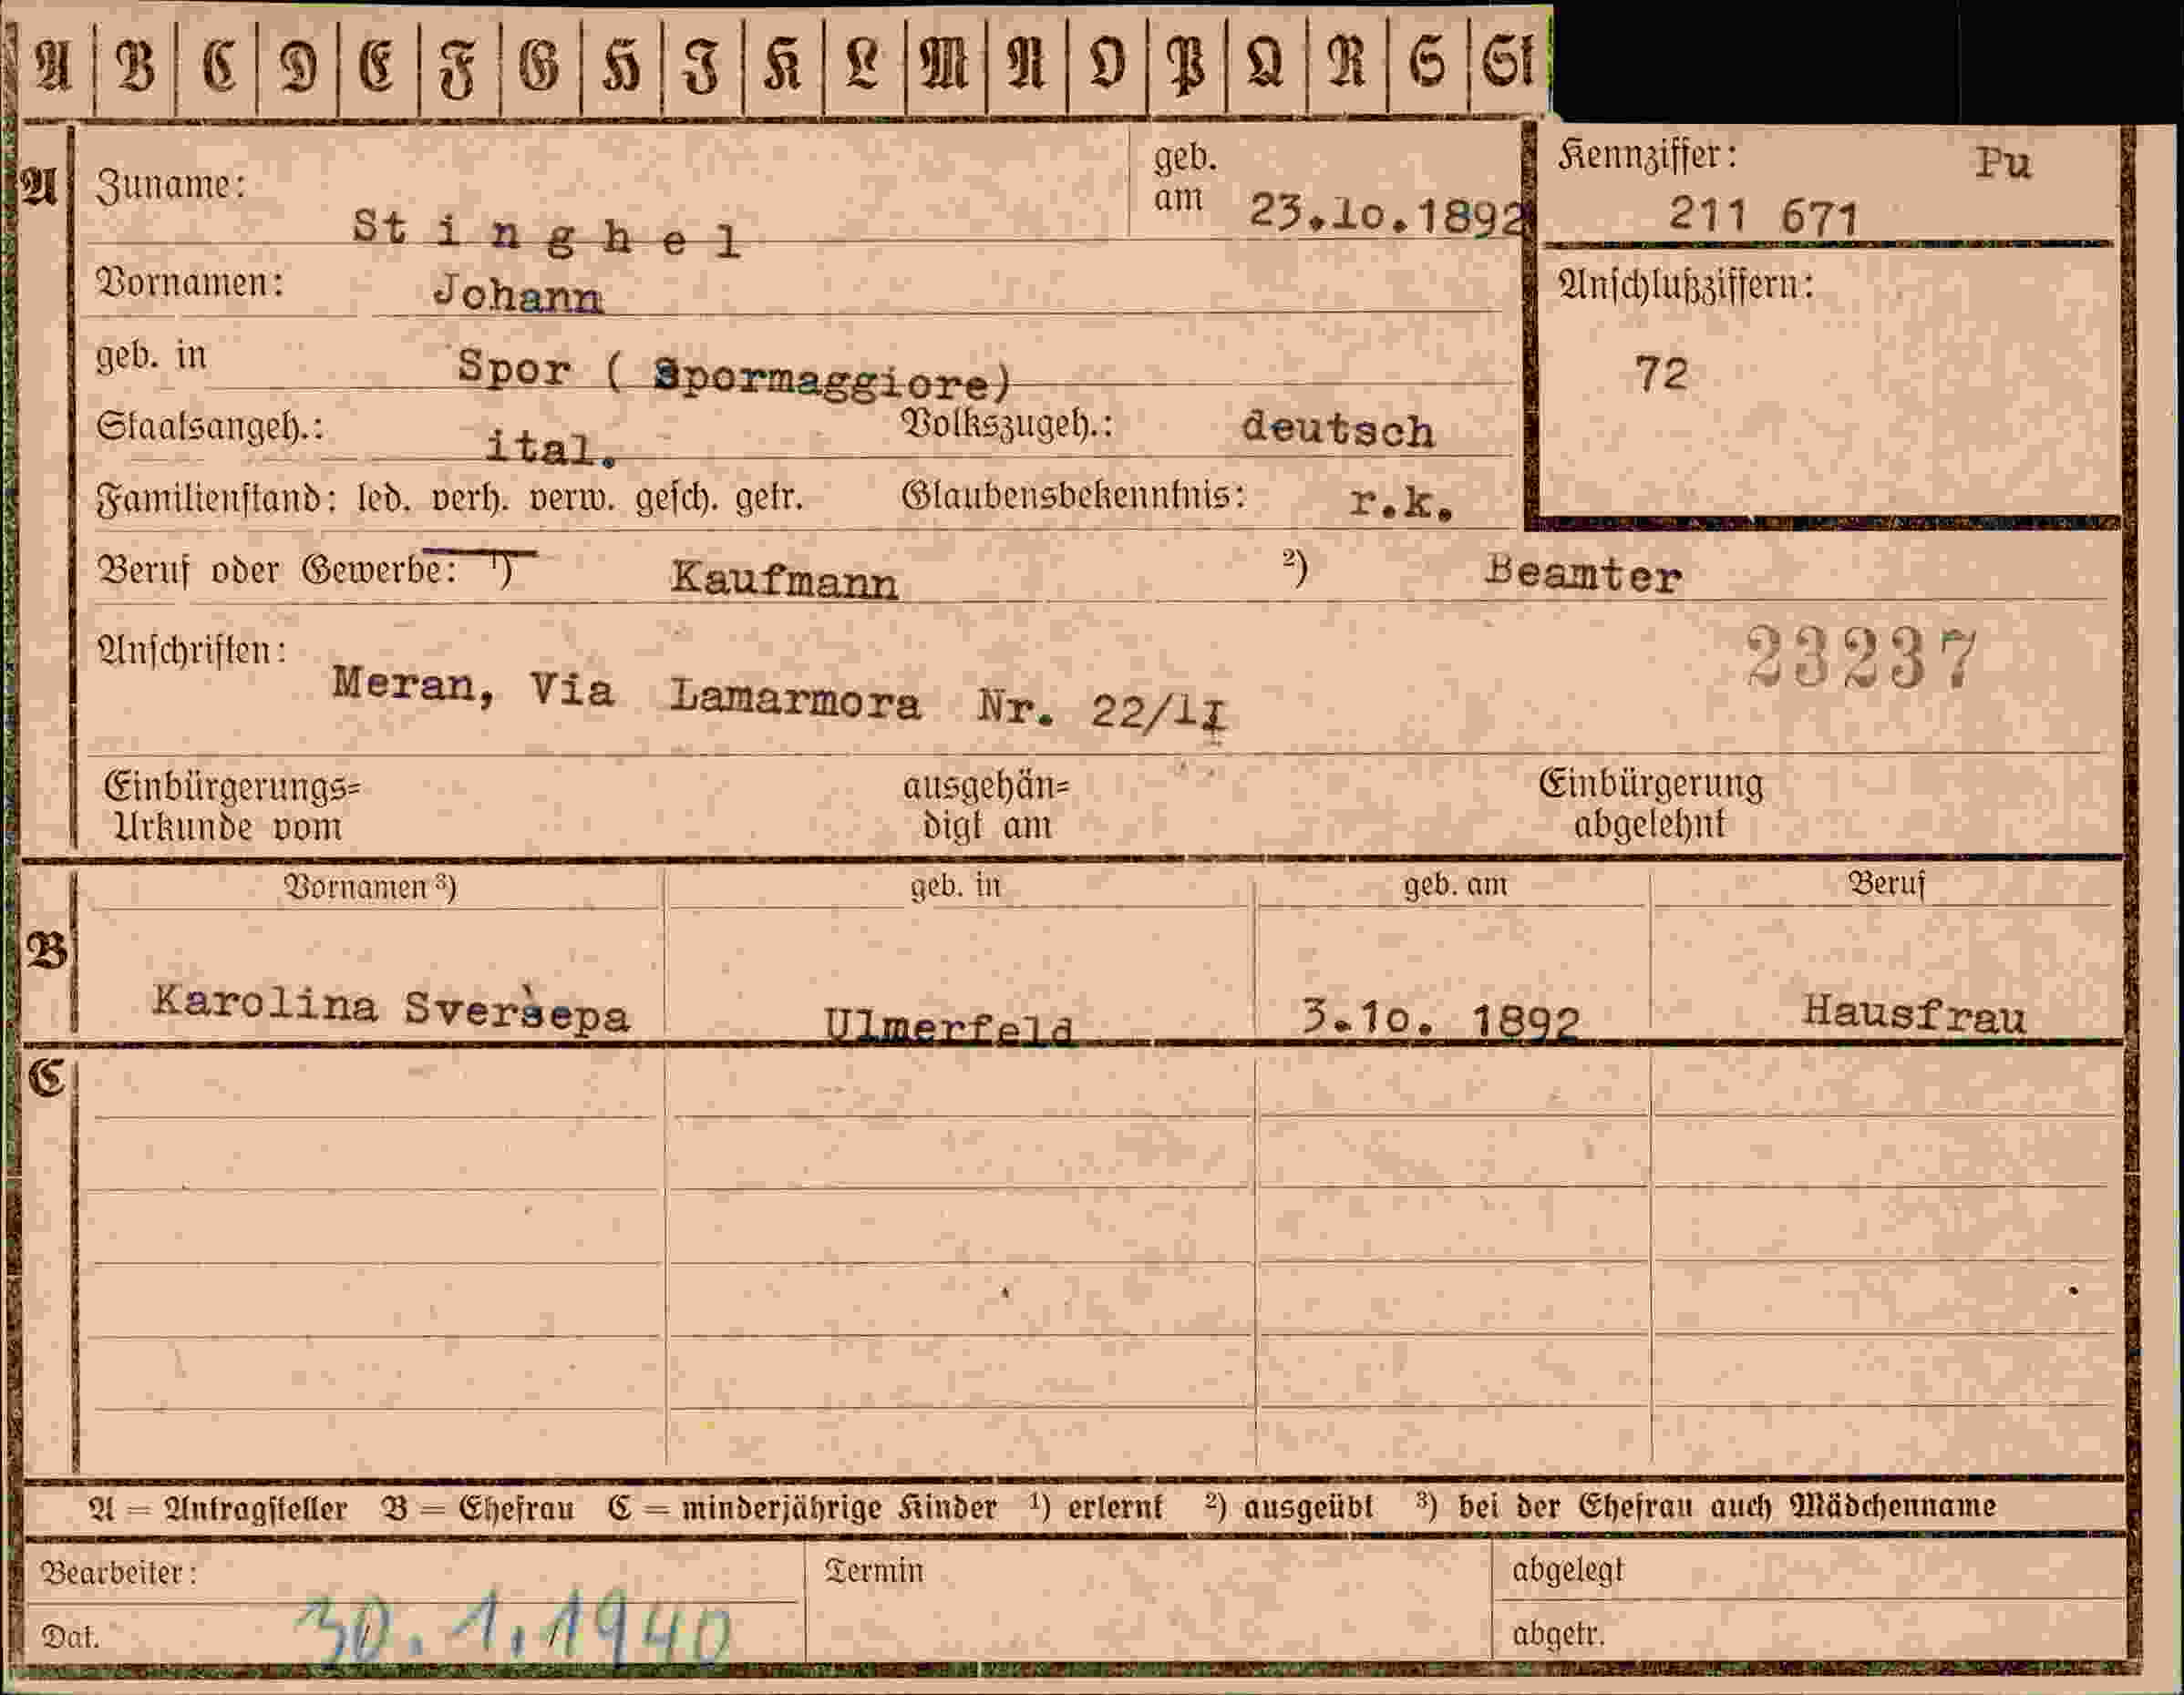 A B C D E F G H I K L M N O P Q R S St
A Zuname: Stinghel geb. am 23.10.1892
Kennziffer: Pu
211 671
Vornamen: Johann
Anschlußziffern:
72
geb. in Spor ( Spormaggiore)
Staatsangeh.: ital. Volkszugeh.: deutsch
Familienstand: led. verh. verw. gesch. getr. Glaubensbekenntnis: r.k.
Beruf oder Gewerbe: 1) Kaufmann 2) Beamter
23237
Anschriften: Meran, Via Lamarmora Nr. 22/II
Einbürgerungs= ausgehän= Einbürgerung
Urkunde vom digt am abgelehnt
Vornamen 3) geb. in geb. am Beruf
B Karolina Sversepa Ulmerfeld 3.10. 1892 Hausfrau
C
A = Antragsteller B = Ehefrau C = minderjährige Kinder 1) erlernt 2) ausgeübt 3) bei der Ehefrau auch Mädchenname
Bearbeiter: Termin abgelegt
Dat. 30.1.1940 abgetr.